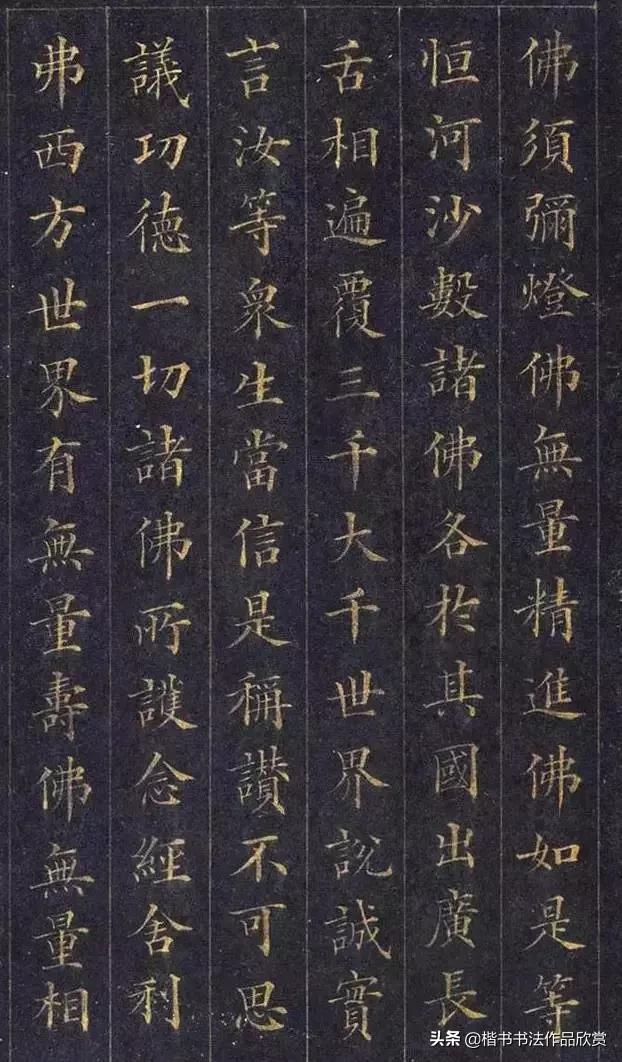 佛須彌燈佛無量精進佛如是等
恒河沙數諸佛各於其國出廣長
舌相遍覆三千大千世界說誠實
言汝等衆生當信是稱讃不可思
議功德一切諸佛所護念經舍利
弗西方世界有無量壽佛無量相
头条 @楷书书法作品欣赏